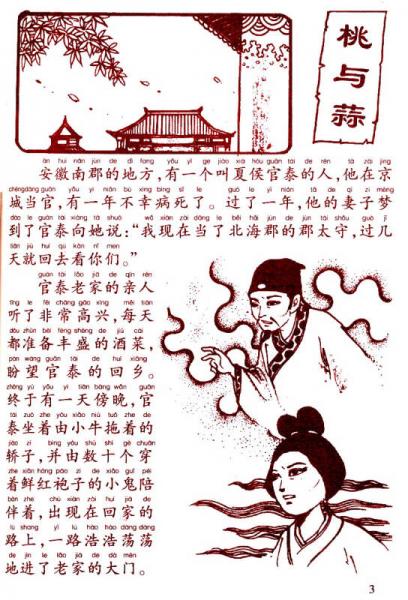 桃与蒜
ān huī nán jùn de dì fang yǒu yí ge jiào xià hóu guān tài de rén tā zài jīng
安徽南郡的地方，有一个叫夏侯官泰的人，他在京
chéng dāng guān yǒu yì nián bú xìng bìng sǐ le guò le yì nián tā de qī zi mèng
城当官，有一年不幸病死了。过了一年，他的妻子梦
dào le guān tài xiàng tā shuō wǒ xiàn zài dāng le běi hǎi jùn de jùn tài shǒu guò jǐ
到了官泰向她说：“我现在当了北海郡的郡太守，过几
tiān jiù huí qù kàn nǐ men
天就回去看你们。”
guān tài lǎo jiā de qīn rén
官泰老家的亲人
tīng le fēi cháng gāo xìng měi tiān
听了非常高兴，每天
dōu zhǔn bèi fēng shèng de jiǔ cài
都准备丰盛的酒菜，
pàn wàng guān tài de huí xiāng
盼望官泰的回乡。
zhōng yú yǒu yì tiān bàng wǎn guān
终于有一天傍晚，官
tài zuò zhe yóu xiǎo niú tuō zhe de
泰坐着由小牛拖着的
jiào zi bìng yóu shù shí gè chuān
轿子，并由数十个穿
zhe xiān hóng páo zi de xiǎo guǐ péi
着鲜红袍子的小鬼陪
bàn zhe chū xiàn zài huí jiā de
伴着，出现在回家的
lù shang yí lù hào hào dàng dàng
路上，一路浩浩荡荡
de jìn le lǎo jiā de dà mén
地进了老家的大门。
3